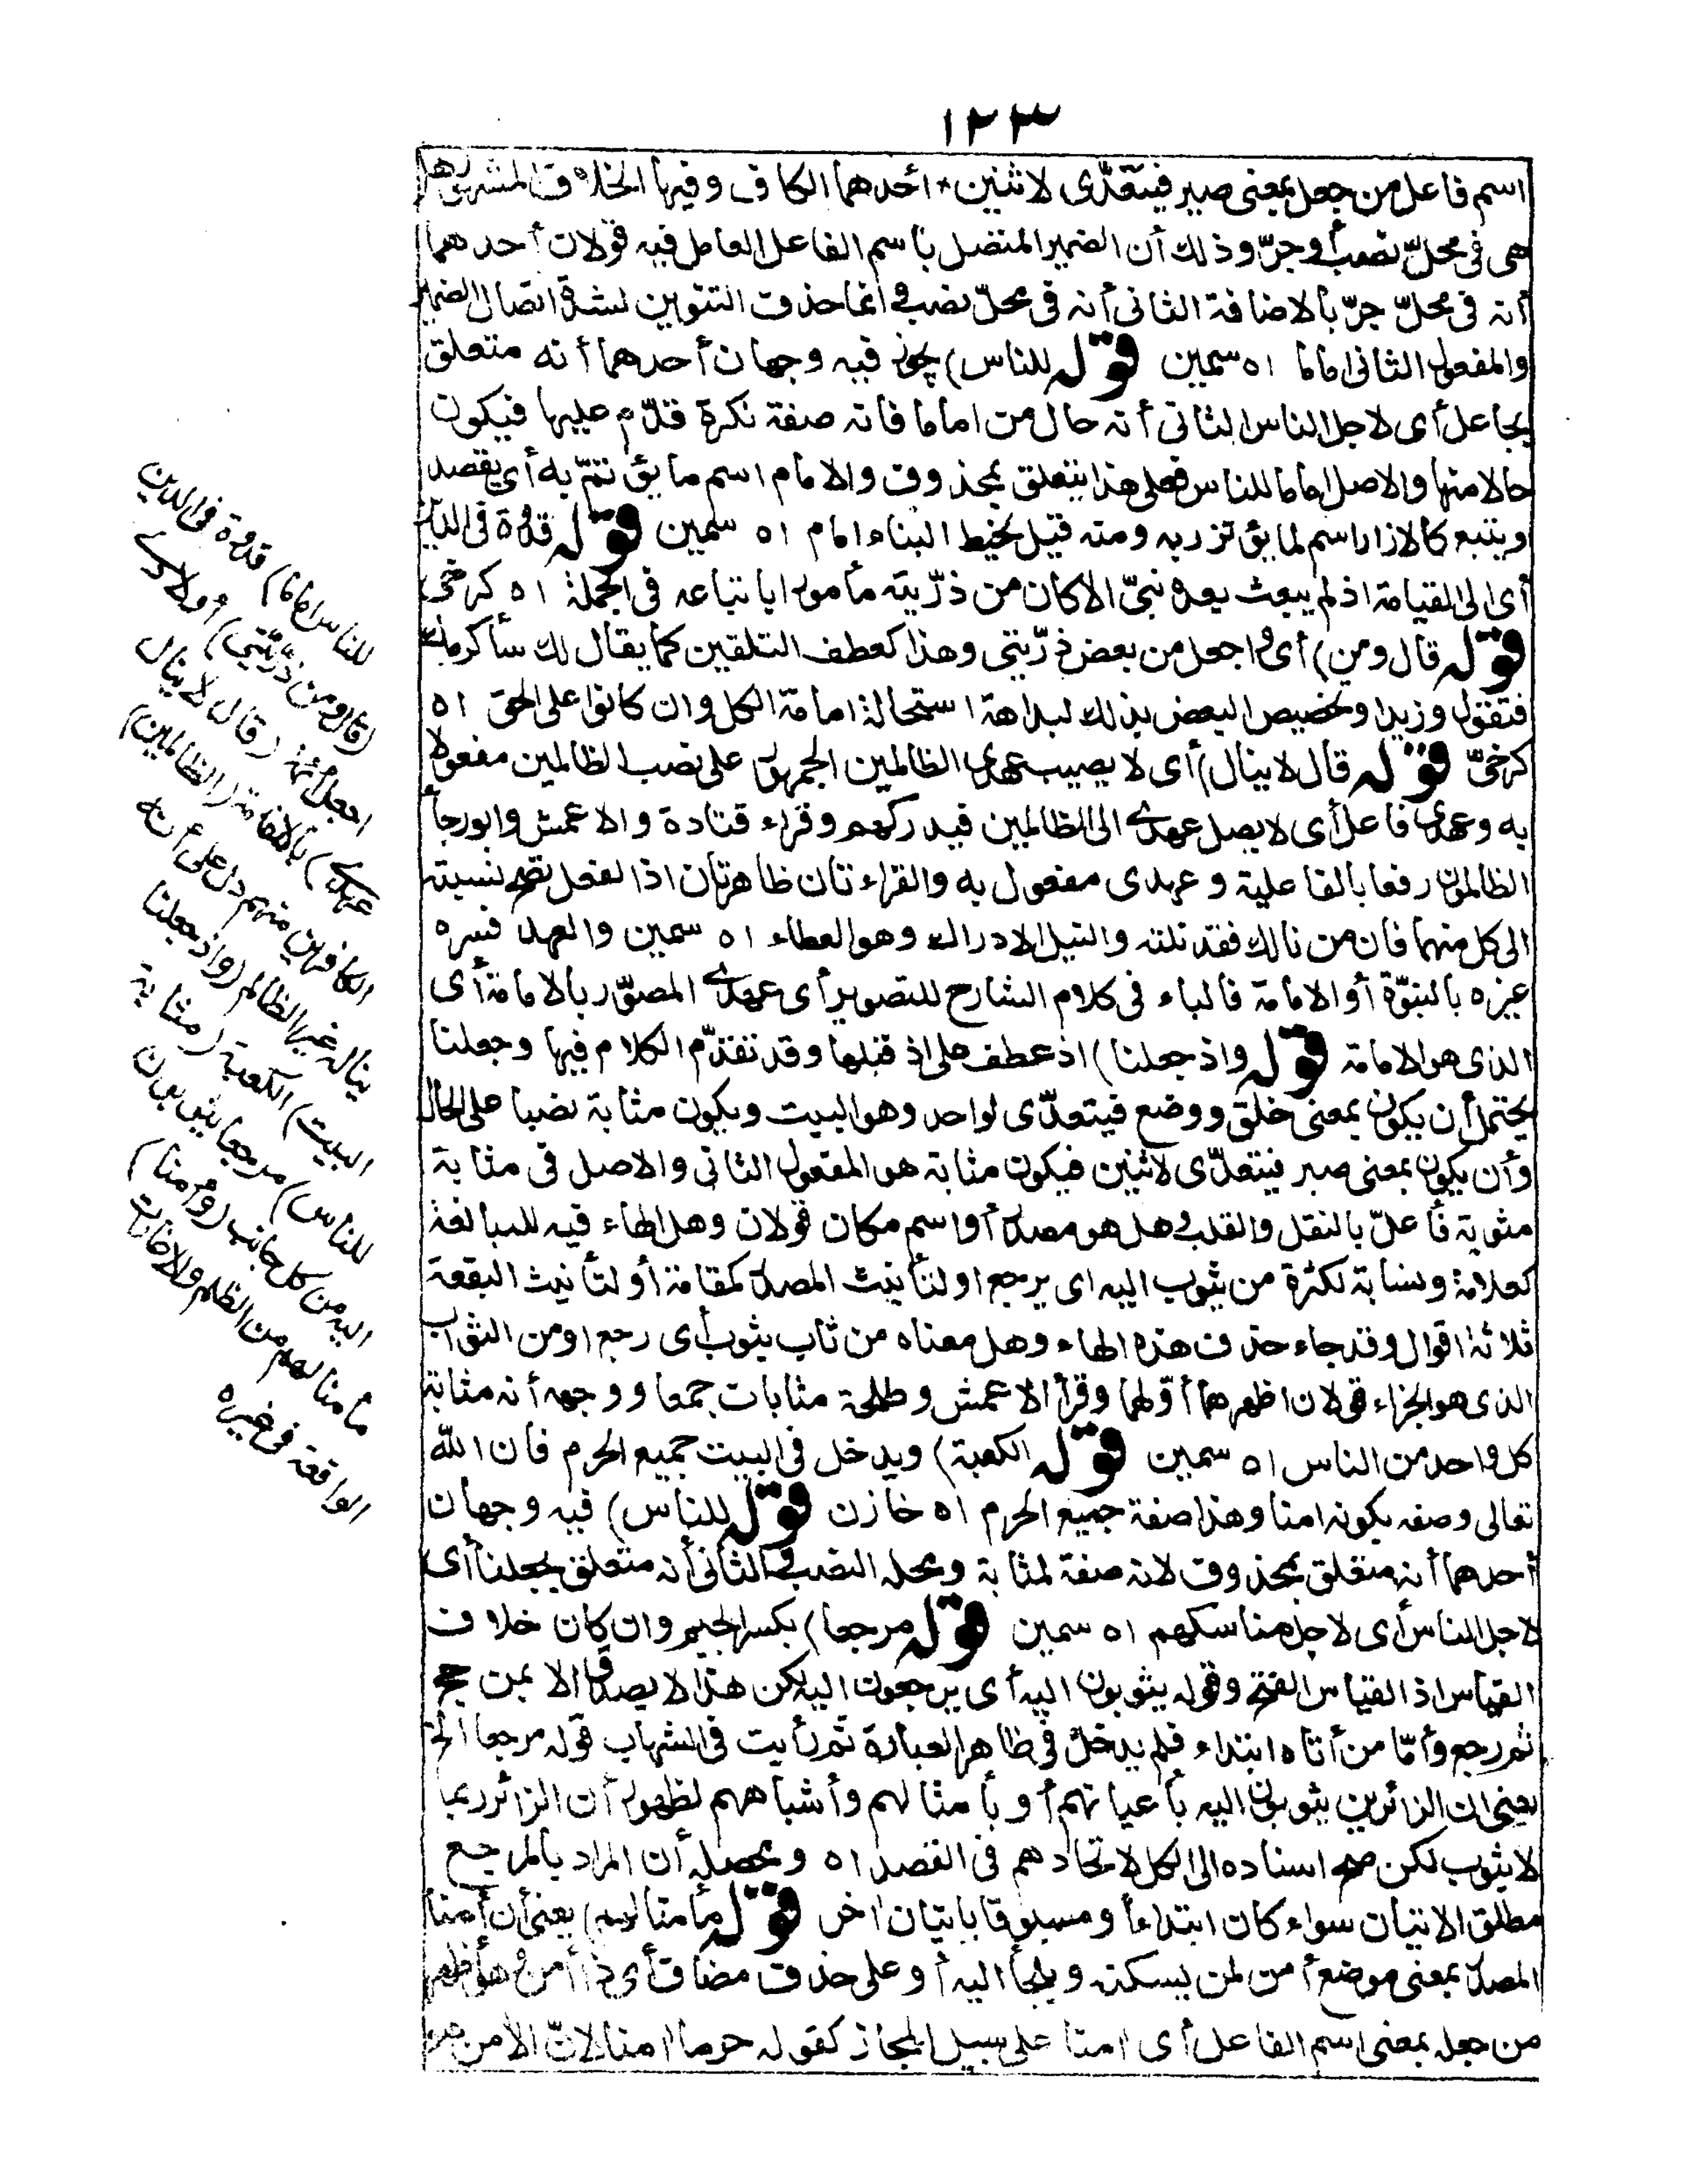 ١٢٣
اسم فاعل من جعل بمعنى صير فيتعدّى لاثنين أحدهما الكاف وفيها الخلاف المشهور هل
هى فى محلّ نصب أو جرّ وذلك أن الضمير المتصل باسم الفاعل العامل فيه قولان أحدهما
أنه فى محلّ جرّ بالاضافة الثانى أنه فى محلّ نصب وانما حذف التنوين لشدة اتصال الضمير
والمفعول الثانى اماما اه سمين قوله للناس) يجوز فيه وجهان أحدهما أنه متعلق
بجاعل أى لاجل الناس الثانى أنه حال من اماما فانه صفة نكرة قدّم عليها فيكون
حالا منها والاصل اماما للناس فعلى هذا يتعلق بمحذوف والامام اسم ما يؤتمّ به أى يقصد
ويتبع كالازار اسم لما يؤتزر به ومنه قيل لخيط البناء امام اه سمين قوله قدوة فى الدين
أى الى القيامة اذ لم يبعث بعده نبىّ الا كان من ذرّيته مأمورا باتباعه فى الجملة اه كرخى
قوله قال ومن) أى واجعل من بعض ذرّيتى وهذا كعطف التلقين كما يقال لك سأكرمك
فتقول وزيدا وتخصيص البعض بذلك لبداهة استحالة امامة الكل وان كانوا على الحق اه
كرخىّ قوله قال لا ينال) أى لا يصيب عهدى الظالمين الجمهور على نصب الظالمين مفعولا
به وعهدى فاعل أى لا يصل عهدى الى الظالمين فيدركهم وقراء قتادة والاعمش وابو رجاء
الظالمون رفعا بالفاعلية وعهدى مفعول به والقراءتان ظاهرتان اذ الفعل تصح نسبته
الى كل منهما فان من نالك فقد نلته والنيل الادراك وهو العطاء اه سمين والعهد فسره
غيره بالنبوّة أو الامامة فالباء فى كلام الشارح للتصوير أى عهدى المصوّر بالامامة أى
الذى هو الامامة قوله واذ جعلنا) اذ عطف على اذ قبلها وقد تقدّم الكلام فيها وجعلنا
يحتمل أن يكون بمعنى خلق ووضع فيتعدّى لواحد وهو البيت ويكون مثابة نصبا على الحال
وأن يكون بمعنى صير فيتعدّى لاثنين فيكون مثابة هو المفعول الثانى والاصل فى مثابة
مثوبة فأعلّ بالنقل والقلب وهل هو مصدر أو اسم مكان قولان وهل الهاء فيه للمبالغة
كعلامة ونسابة لكثرة من يثوب اليه اى يرجع او لتأنيث المصدر كمقامة أو لتأنيث البقعة
ثلاثة اقوال وقد جاء حذف هذه الهاء وهل معناه من ثاب يثوب أى رجع او من الثواب
الذى هو الجزاء قولان اظهرهما أوّلهما وقرأ الاعمش وطلحة مثابات جمعا ووجهه أنه مثابة
كل واحد من الناس اه سمين قوله الكعبة) ويدخل فى البيت جميع الحرم فان الله
تعالى وصفه بكونه امنا وهذا صفة جميع الحرم اه خازن قوله للناس) فيه وجهان
أحدهما أنه متعلق بمحذوف لانه صفة لمثابة ومحله النصب والثانى أنه متعلق بجعلنا أى
لاجل الناس أى لاجل مناسكهم اه سمين قوله مرجعا) بكسر الجيم وان كان خلاف
القياس اذ القياس الفتح وقوله يثوبون اليه أى يرجعون اليه لكن هذا لا يصدق الا بمن حج
ثم رجع وأمّا من أتاه ابتداء فلم يدخل فى ظاهر العبارة ثم رأيت فى الشهاب قوله مرجعا الخ
يعنى ان الزائرين يثوبون اليه بأعيانهم أو بأمثالهم وأشباههم لظهور أن الزائر ربما
لا يثوب لكن صح اسناده الى الكل لاتحادهم فى القصد اه ومحصله أن المراد بالمرجع
مطلق الاتيان سواء كان ابتداء أو مسبوقا باتيان اخر قوله مأمنا لهم) يعنى أن أمنا
المصدر بمعنى موضع أمن لمن يسكنه ويلجأ اليه أو على حذف مضاف أى ذا أمن وهو أظهر
من جعله بمعنى اسم الفاعل أى امنا على سبيل المجاز كقوله حرما امنا لانّ الامن هو
للناس اماما) قدوة فى الدين
(قال ومن ذرّيتى) أولادى
اجعل أئمة (قال لا ينال
عهدى) بالامامة (الظالمين)
الكافرين منهم دل على أنه
ينال غير الظالم (واذ جعلنا
البيت) الكعبة (مثابة
للناس) مرجعا يثوبون
اليه من كل جانب (وأمنا)
مأمنا لهم من الظلم والاغارات
الواقعة فى غيره